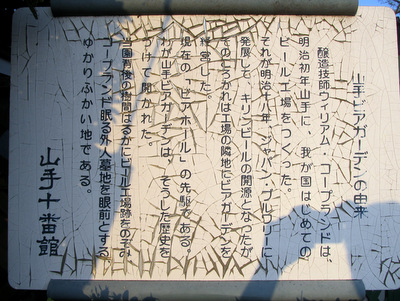 山手ビアガーデンの由来
醸造技師ウィリアム・コープランドは、
明治初年山手に、我が国はじめての
ビール工場をつくった。
それが明治十八年、ジャパン・ブルワリーに
発展して、キリンビールの開源となったが
そのころかれは工場の隣地にビアガーデンを
経営した。
現在の「ビアホール」の先駆である。
山手ビアガーデンは、そうした歴史を
うけて開かれた。
園背後の樹間はるかにビール工場跡をのぞみ
コープランド眠る外人墓地を眼前とする
ゆかりふかい地である。
山手十番館